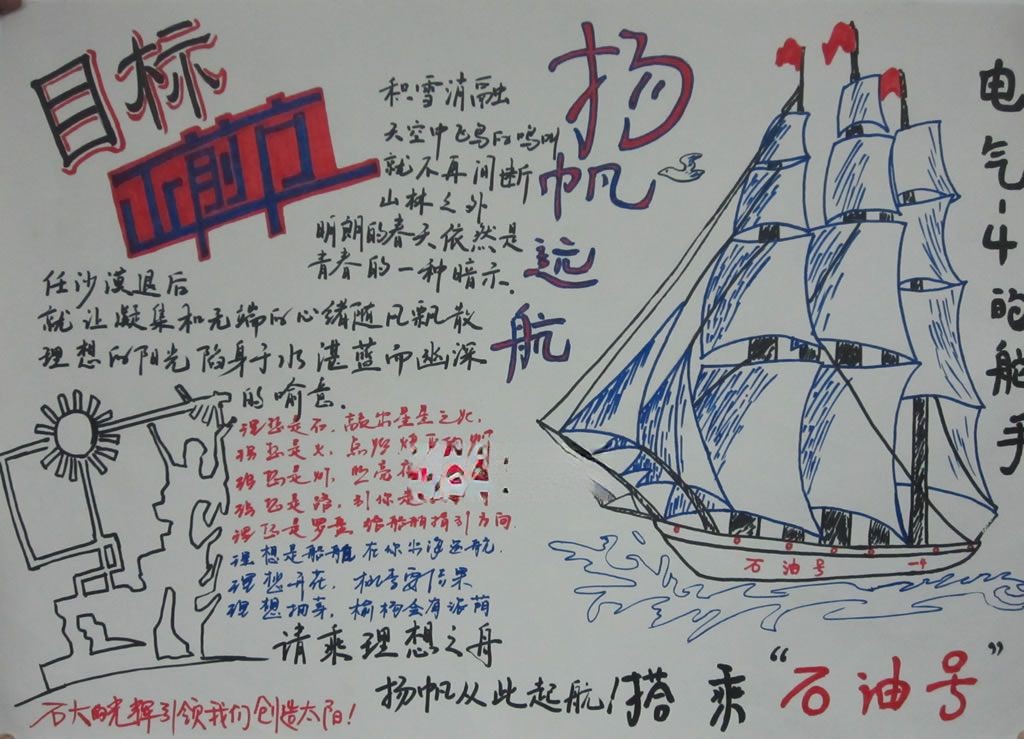 目标
正前方
积雪消融
天空中飞鸟的鸣叫
就不再间断
山林之外
明朗的春天依然是
青春的一种暗示.
任沙漠退后
就让凝集和无端的心绪随风飘散
理想的阳光陷身于水湛蓝而幽深
的喻意.
理想是石,敲出星星之火,
理想是火,点燃
理想是灯,照亮
理想是路,引你走
理想是罗盘 给船舶指引方向
理想是船艇 在你出海远航.
理想开花,桃李要结果
理想抽芽,榆杨会有浓荫
请乘理想之舟
扬帆从此起航!搭乘“石油号”
石大的光辉引领我们创造太阳!
扬帆远航
电气-4的舵手
石油号